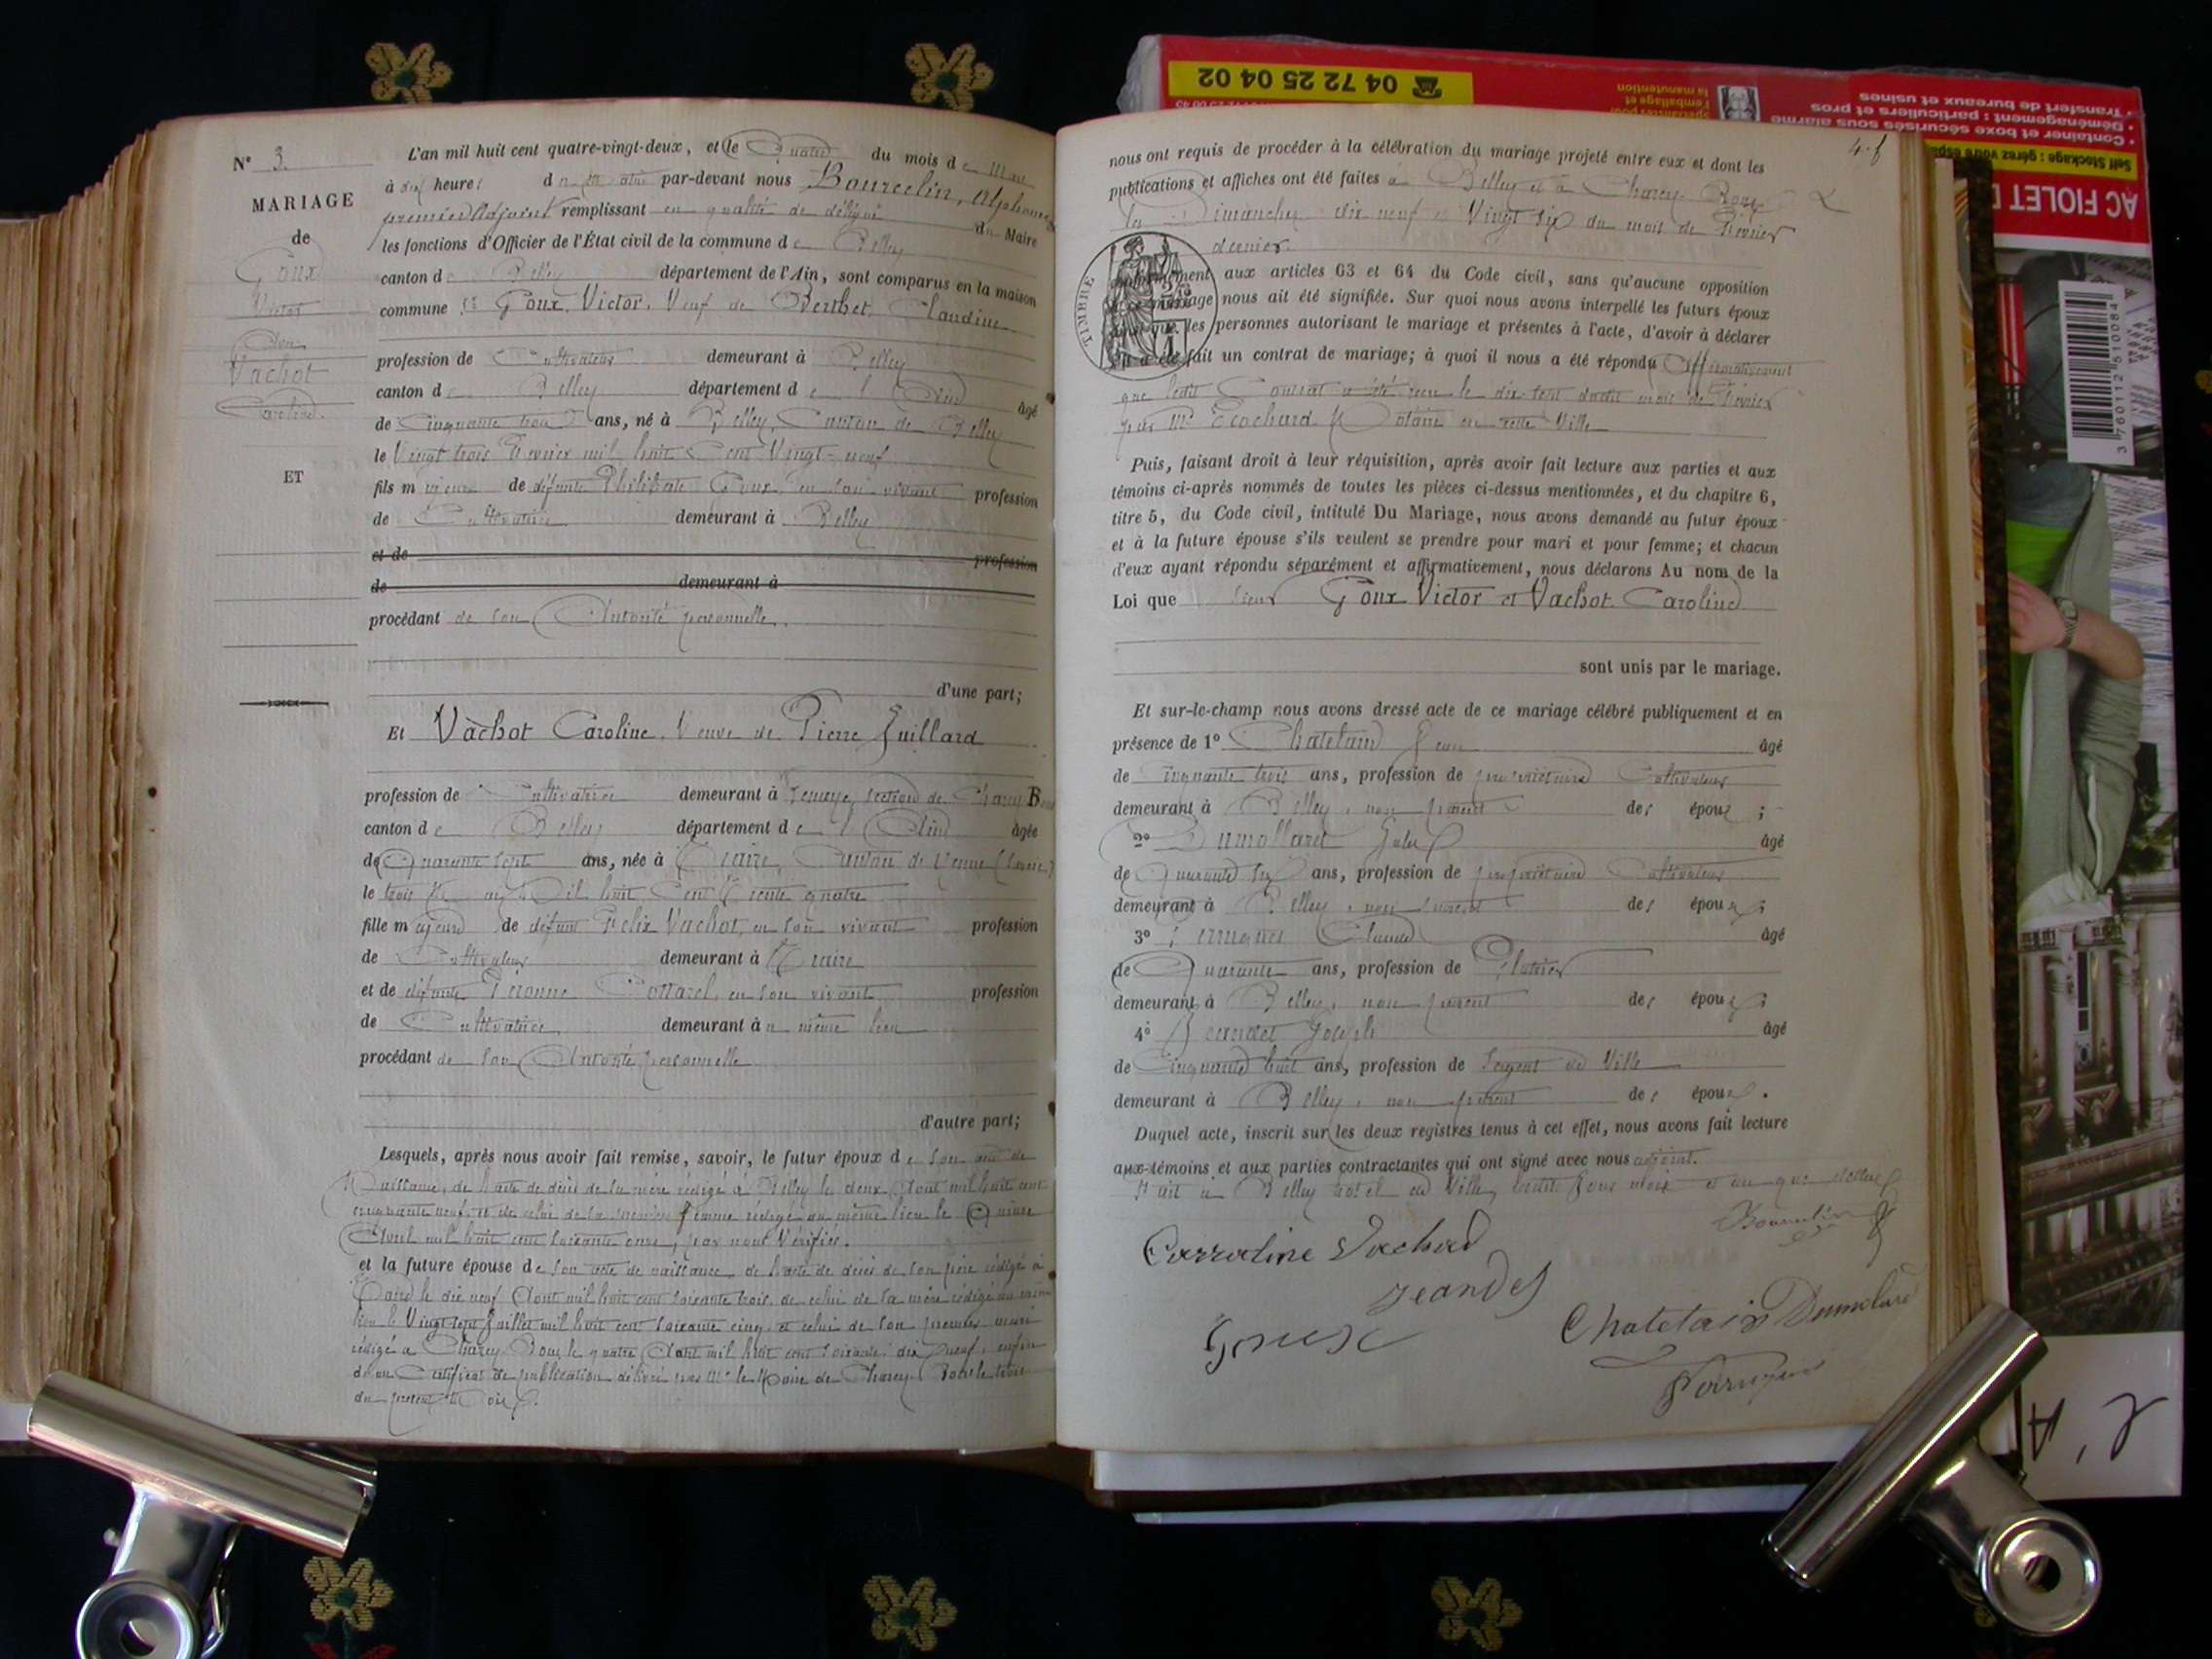 N° 3.
MARIAGE
de
Goux
Victor
Vachot
Caroline
ET
L'an mil huit cent quatre-vingt-deux, et le Quatre du mois de Mars
à dix heures du matin par-devant nous Bourcelin, Alphonse
premier Adjoint remplissant en qualité de délégué du Maire
les fonctions d'Officier de l'État civil de la commune de Belley
canton de Belley département de l'Ain, sont comparus en la maison
commune Goux, Victor, Veuf de Berthet, Claudine
profession de Cultivateur demeurant à Belley
canton de Belley département de l'Ain âgé
de Cinquante trois ans, né à Belley, Canton de Belley
le Vingt trois Février mil huit Cent Vingt-neuf
fils m de défunte Philiberte Goux, en son vivant profession
de Cultivatrice demeurant à Belley
et de profession
de demeurant à
procédant de son Autorité personnelle.
d'une part;
Et Vachot Caroline, Veuve de Pierre Juillard
profession de Cultivatrice demeurant à section de Charey
canton de Belley département de l'Ain âgée
de Quarante sept ans, née à Traize, Canton de Yenne (Savoie)
le trois mil huit Cent Trente quatre
fille majeure de défunt Felix Vachot, en son vivant profession
de Cultivateur demeurant à Traize
et de défunte Péronne Cottarel, en son vivant profession
de Cultivatrice demeurant au même lieu
procédant de son Autorité personnelle
d'autre part;
Lesquels, après nous avoir fait remise, savoir, le futur époux de son acte de
Naissance, de l'acte de décès de sa mère rédigé à Belley le deux Août mil huit cent
cinquante neuf, et de celui de sa première femme rédigé au même lieu le Quinze
Avril mil huit cent soixante onze, par nous Vérifiés.
et la future épouse de son acte de naissance, de l'acte de décès de son père rédigé à
le dix neuf Août mil huit cent soixante trois, de celui de sa mère rédigé au même
lieu le Vingt sept Juillet mil huit cent soixante cinq, et celui de son premier mari
rédigé à Charey Bons le quatre Août mil huit cent soixante dix neuf, enfin
d'un Certificat de publication délivré par Mr le Maire de Charey Bons le trois
du présent Mois.
4.f
nous ont requis de procéder à la célébration du mariage projeté entre eux et dont les
publications et affiches ont été faites à Belley et à Charey Bons
les Dimanches dix neuf et Vingt six du mois de Février
dernier.
conformément aux articles 63 et 64 du Code civil, sans qu'aucune opposition
mariage nous ait été signifiée. Sur quoi nous avons interpellé les futurs époux
ainsi que les personnes autorisant le mariage et présentes à l'acte, d'avoir à déclarer
s'il a été fait un contrat de mariage; à quoi il nous a été répondu Affirmativement
que ledit Contrat a été reçu le dix sept dudit mois de Février
par Me Ecochard Notaire en cette Ville
TIMBRE
Puis, faisant droit à leur réquisition, après avoir fait lecture aux parties et aux
témoins ci-après nommés de toutes les pièces ci-dessus mentionnées, et du chapitre 6,
titre 5, du Code civil, intitulé Du Mariage, nous avons demandé au futur époux
et à la future épouse s'ils veulent se prendre pour mari et pour femme; et chacun
d'eux ayant répondu séparément et affirmativement, nous déclarons Au nom de la
Loi que sieur Goux Victor et Vachot Caroline
sont unis par le mariage.
Et sur-le-champ nous avons dressé acte de ce mariage célébré publiquement et en
présence de 1° Chatelain Jean âgé
de Cinquante trois ans, profession de propriétaire Cultivateur
demeurant à Belley, non parent des époux;
2° Dumollard Jules âgé
de Quarante six ans, profession de propriétaire Cultivateur
demeurant à Belley, non parent des époux;
3° Claude âgé
de Quarante ans, profession de Plâtrier
demeurant à Belley, non parent des époux;
4° Joseph âgé
de Cinquante huit ans, profession de Sergent de Ville
demeurant à Belley, non parent des époux.
Duquel acte, inscrit sur les deux registres tenus à cet effet, nous avons fait lecture
aux témoins et aux parties contractantes qui ont signé avec nous adjoint.
Fait à Belley hôtel de Ville, ledit Jour mois et an que dessus
Bourcelin
Carroline Vachod
Jeandet
Goux
Chatelain Dumolard
04 72 25 04 02
l'emballage et
la manutention
• Container et boxe sécurisés sous alarme
• Déménagement : particuliers et pros
• Transfert de bureaux et usines
Self Stockage : gérez votre espace
AC FIOLET D
3 760112 510084